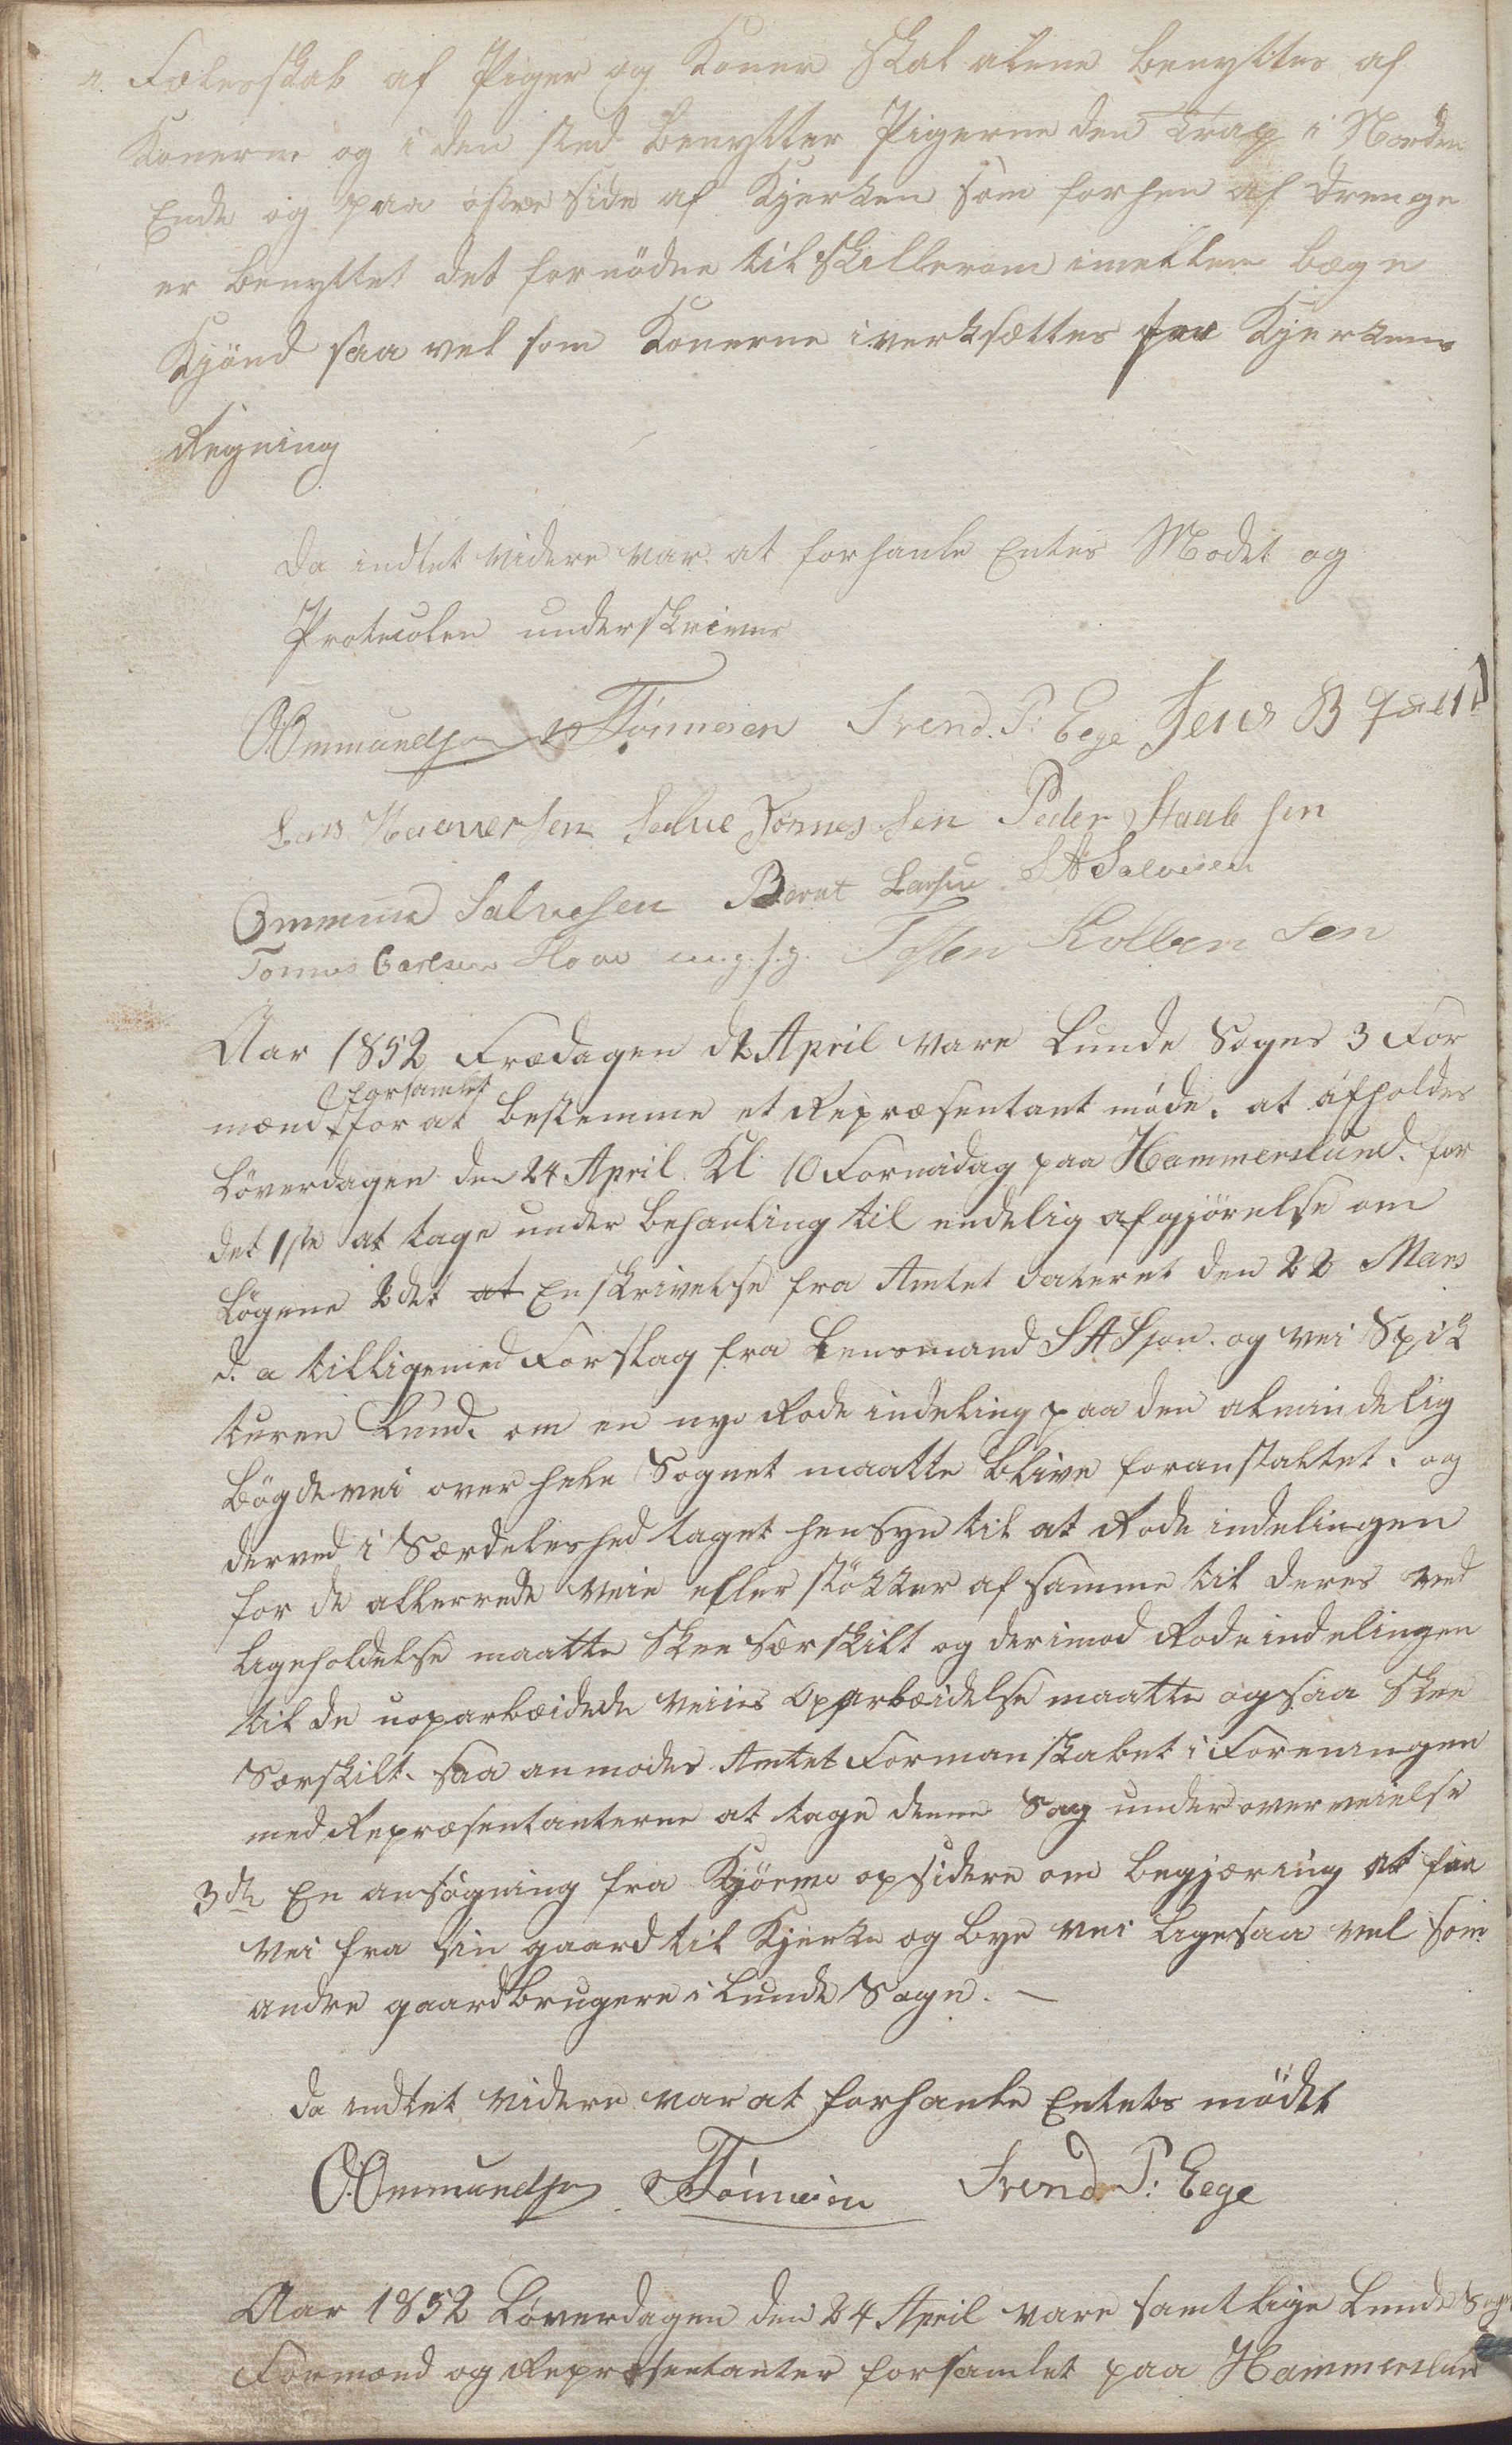 Fælesskab af Piger og Koner skal alene benyttes af
Konerne og i den sted benytter Pigerne den Trap i Norden
Ende og paa østre Side af Kjerken som forhen af Drenge
er benyttet det fornødne til Skillerom imellem begge
Kjønd saa vel som Konerne iverksættes paa Kjerkens
Regning
da indtet videre var at forhanle Entes Modet og
Protocolen underskrives
O Ommundsen Tønnesen Svend P: Eege Jens B
Lars Haaversen Salve Tønnes Sen Peder Staalesen
Ommund Salvesen Bernt Larsen S A Salvesen
Tønnes Carlsen Hove m. p. p. Tosten Kolben Sen
Aar 1852 Frædagen d 2 April vare Lunde Sogns 3 For
forsamlet
mænd for at bestemme et Repræsentant møde. at afholdes
Løverdagen den 24 April Kl 10 Formidag paa Hammerslund. for
det 1ste at tage under behanling til endelig afgjørelse om
Løgene 2det at En skrivelse fra Amtet dateret den 22 Mars
d. a tilligemed Forslag fra Lensmand S A og vei Spik
turen Lund. om en nye Rode indeling paa den almindelig
Bøgdevei over hele Sognet maatte blive foranstaltet. og
derved i Særdeleshed taget hensyn til at Rode indelingen
for de allerrede veie eller støkker af samme til deres ved
ligeholdelse maatte Skee særskilt og derimod Rodeindelingen
til de uoparbeidede veiies Oparbeidelse maatte ogsaa Skee
Særskilt. saa anmodes Amtet Formanskabet i Foreningen
med Repræsentanterne at tage denne Sag under overveielse
3de En ansøgning fra Kjørme opsidere om begjæring at faa
vei fra sin gaard til Kjerke og bye vei ligesaa vel som
andre gaardbrugere i Lunde Sogn. —
da indtet videre var at forhanle Entets mødet
O. Ommundsen Tønnesen Svend P: Eege
Aar 1852 Løverdagen den 24 April vare samtlige Lunde Sogns
Formænd og Repræsentanter forsamlet paa Hammerslund